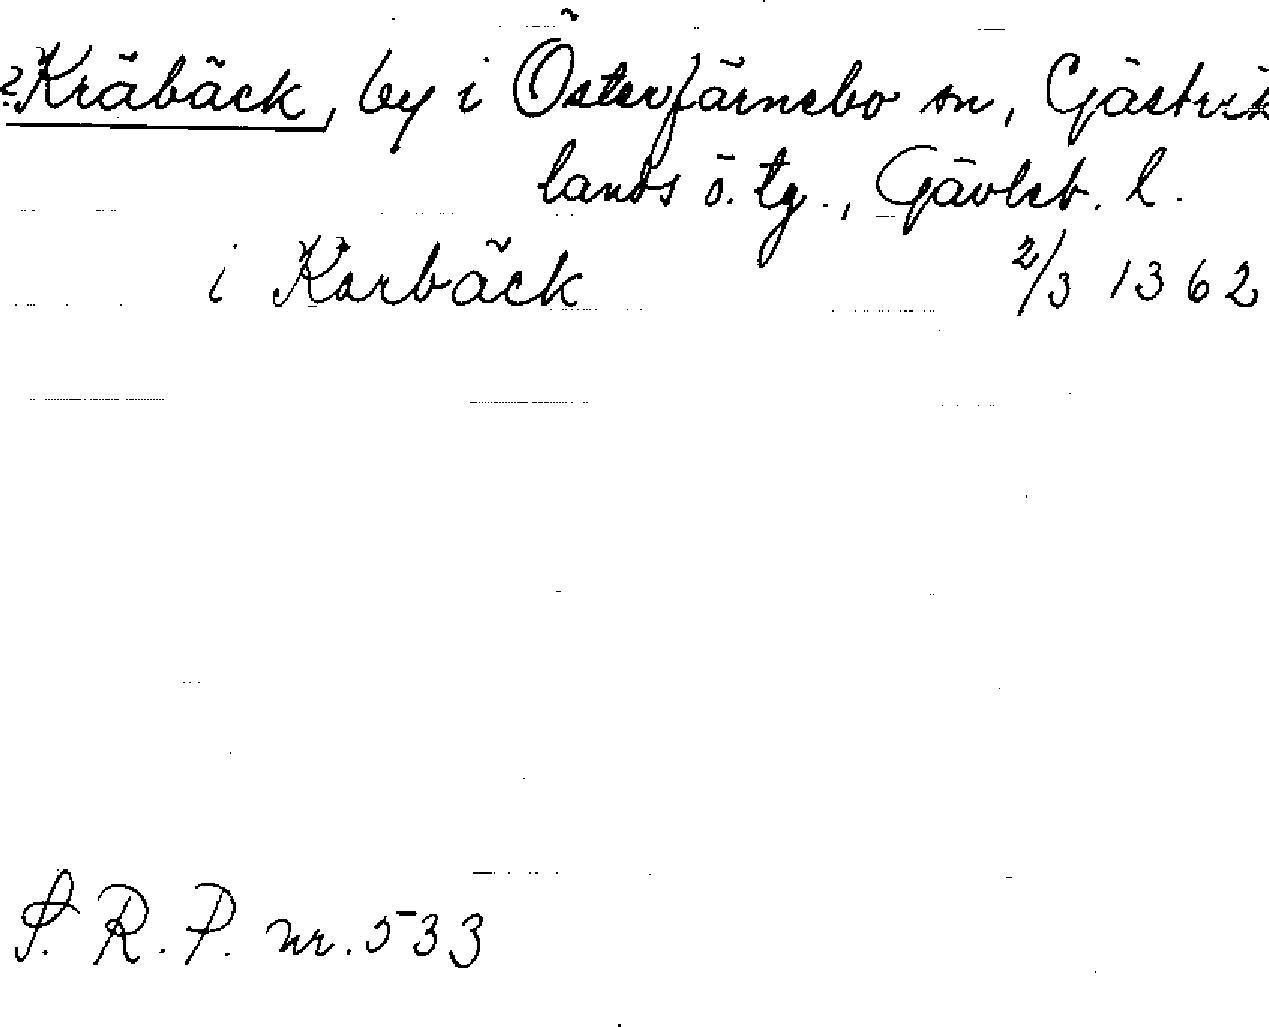 ?Kräbäck, by i Österfärnebo sn, Gästrik
lands ö. tg., Gävleb. l.
i Karbäck 2/3 1362
S. R. P. nr. 533